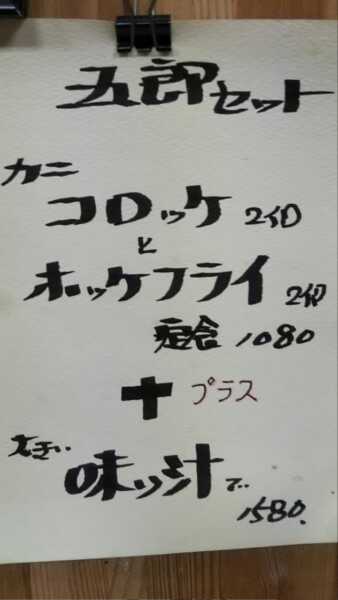 五郎セット
カニ
コロッケ 2イ固
と
ホッケフライ 2個
定食 1080
+ プラス
大きい
味ッ汁で
1580.